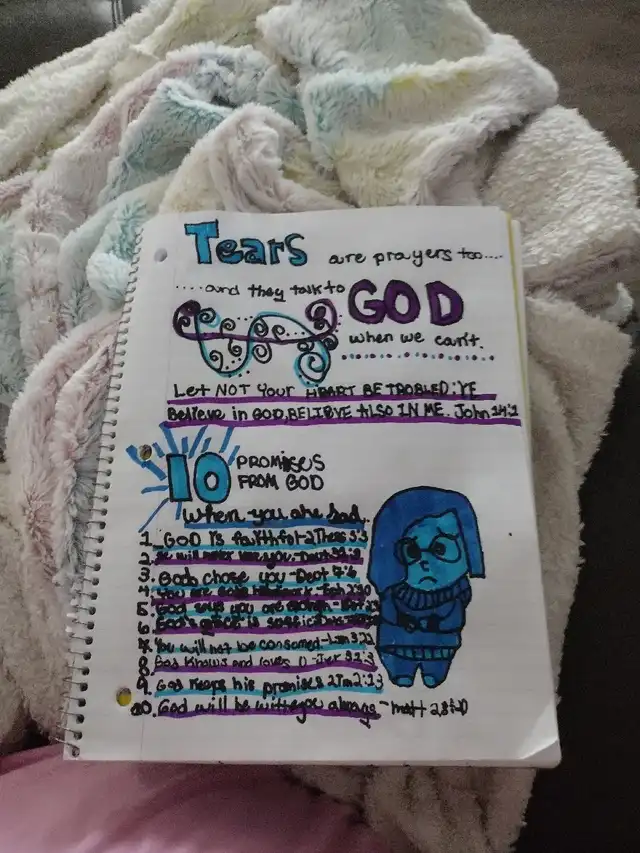 Tears are prayers too....
....and they talk to GOD
when we can't.
Let NOT YOUR HEART BE TROBLED; YE
Believe in GOD, BELIEVE ALSO IN ME. John 14:1
10 PROMISES
FROM GOD
when you are sad.
1. GOD IS faithful-2 Thess 3:3
2. He will never
3. Gods chose you-Deut 7:6
4. You are
5. God says you are enough
6. God's grace is
7. You will not be consumed-Lam 3:22
8. God knows and loves U-Jer 32:3
9. God keeps his promises 2Tm 2:13
10. God will be with you always-matt 28:20